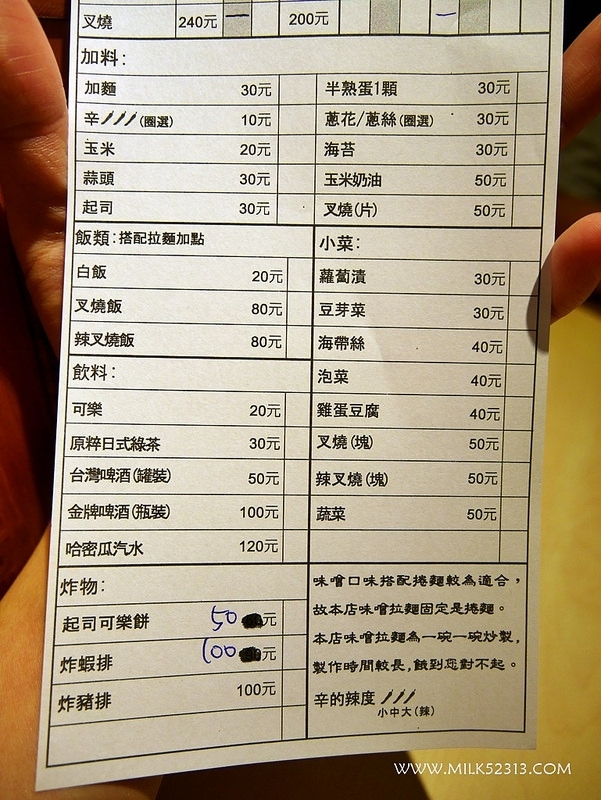 叉燒 240元 200元
加料:
加麵 30元 半熟蛋1顆 30元
辛 (圈選) 10元 蔥花/蔥絲(圈選) 30元
玉米 20元 海苔 30元
蒜頭 30元 玉米奶油 50元
起司 30元 叉燒(片) 50元
飯類:搭配拉麵加點
白飯 20元
叉燒飯 80元
辣叉燒飯 80元
飲料:
可樂 20元
原粹日式綠茶 30元
台灣啤酒(罐裝) 50元
金牌啤酒(瓶裝) 100元
哈密瓜汽水 120元
炸物:
起司可樂餅 50元
炸蝦排 100元
炸豬排 100元
小菜:
蘿蔔漬 30元
豆芽菜 30元
海帶絲 40元
泡菜 40元
雞蛋豆腐 40元
叉燒(塊) 50元
辣叉燒(塊) 50元
蔬菜 50元
味噌口味搭配捲麵較為適合,
故本店味噌拉麵固定是捲麵。
本店味噌拉麵為一碗一碗炒製,
製作時間較長,餓到您對不起。
辛的辣度
小中大(辣)
WWW.MILK52313.COM